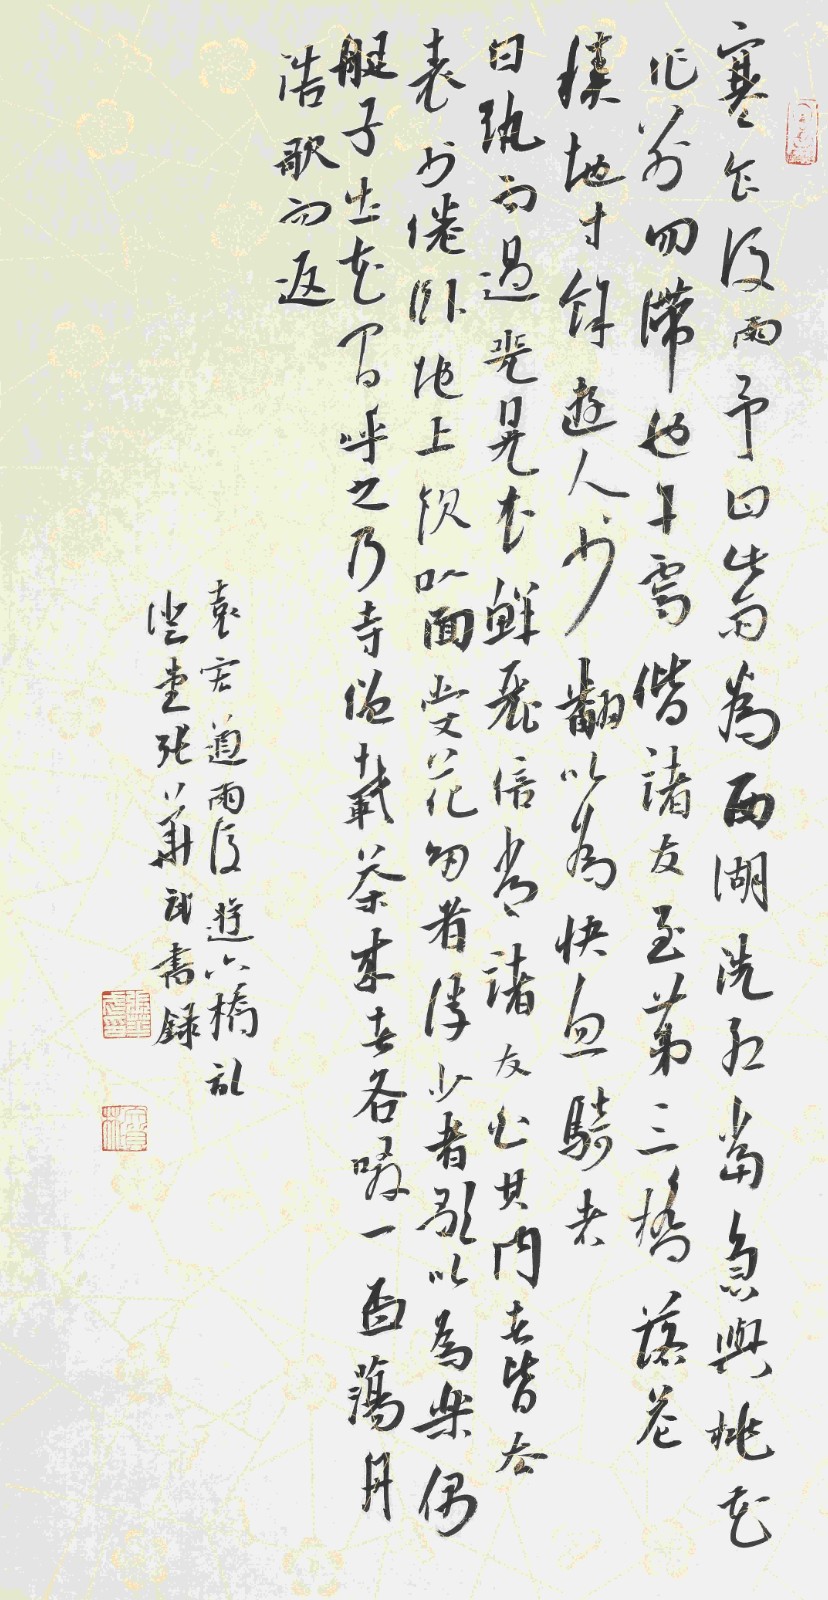 寒食後雨予曰此雨為西湖洗紅當急與桃花
作別勿滯也午霽偕諸友至第三橋落花
積地寸餘遊人少翻以為快忽騎者
白紈而過光晃衣鮮麗倍常諸友白其內者皆去
表少倦臥地上飲以面受花多者浮少者歌以為樂偶
艇子出花間呼之乃寺僧載茶來者各啜一杯蕩舟
浩歌而返
袁宏道雨後遊六橋記
堂張華武書錄